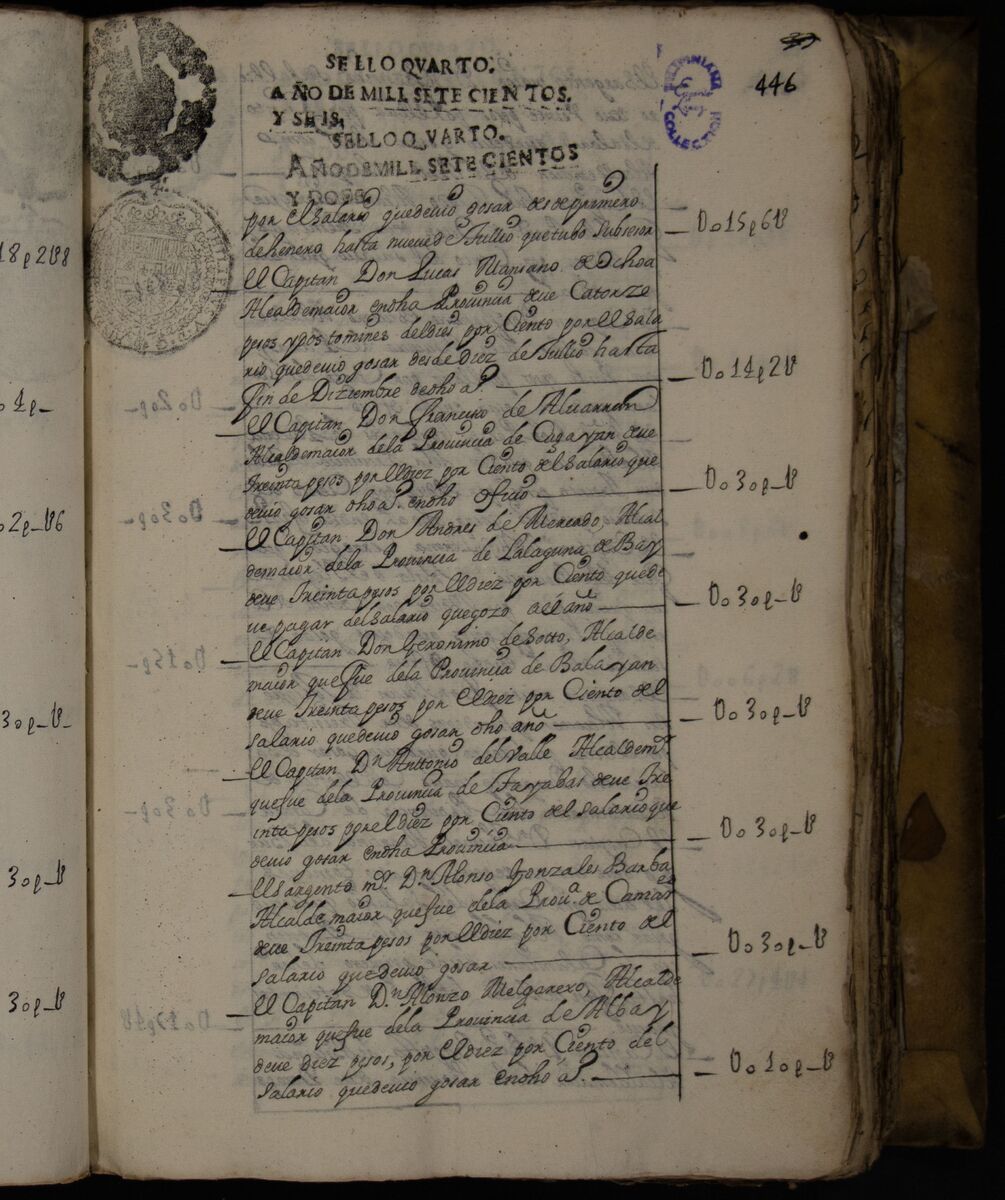 SELLO QVARTO.
AÑO DE MILL SETE CIENTOS.
Y SEIS,
SELLO QVARTO.
AÑO DE MILL SETE CIENTOS
Y DOSE
446
FILIPINIANA
COLLECTION
por El Salario quedeuio gosar desde primero
de henero hasta nueue de Jullio que tubo Subsesor
U015p6U
El Capitan Don Lucas Mansano de Ochoa
Alcaldemaior endha Prouincia deue Catorze
pesos y dos tomines del dies por Ciento por El Sala
rio quedeuio gosar desde Diez de Jullio hasta
fin de Diziembre de dho aº
U014p2U
El Capitan Don francisco de
Alcaldemaior dela Prouincia de Cagayan deue
treinta pesos por El diez por Ciento del Salario que
deuio gosar dho aº endho oficio
U030p_U
El Capitan Don Andres de Mercado, Alcal
demaior dela Prouincia de Lalaguna de Bay
deue treinta pesos por El diez por Ciento quede
ue pagar del Salario que gozo
U030p_U
El Capitan Don Geronimo de Sotto, Alcalde
maior quefue dela Prouincia de Balayan
deue treinta pesos por El diez por Ciento del
Salario quedeuio gosar dho año
U030p_U
El Capitan Dn Anttonio del Valle Alcaldemr
quefue dela Prouincia de Tayabas deue tre
inta pesos por el diez por Ciento del Salario que
deuio gosar endha Prouincia
U030p_U
El Sargento mr. Dn Alonso Gonzales Barba
Alcalde maior quefue dela Proua. de Camar
es
deue treinta pesos por El diez por Ciento del
Salario quedeuio gosar
U030p_U
El Capitan Dn Alonzo Melgarexo, Alcalde
maior quefue dela Prouincia de Albay
deue diez pesos, por El diez por Ciento del
Salario quedeuio gosar endho aº.
U010p_U